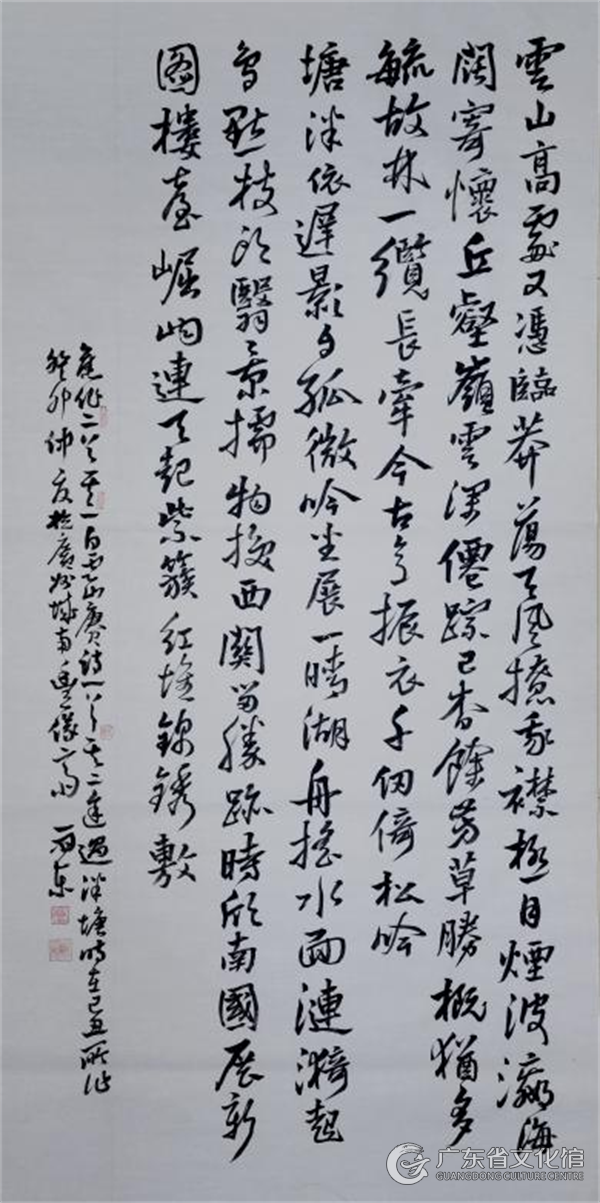 雲山高處又憑臨莽蕩天風撩我襟極目煙波瀛海
闊寄懷丘壑嶺雲深僊踪已杳餘芳草勝概猶多
毓故林一纜長牽今古振衣千仞倚松吟
塘泮依遲影孤微吟坐展一晴湖舟搖水面漣漪起
鳥點枝頭翳景擩物換西關留勝跡時欣南國展新
圖樓臺崛峋連天起紫簇紅堆錦繡敷
舊作二首其一白雲山賡詩一首其二重過泮塘時在己丑所作
癸卯仲夏於廣州城南
广东省文化馆
GUANGDONG CULTURE CENTRE